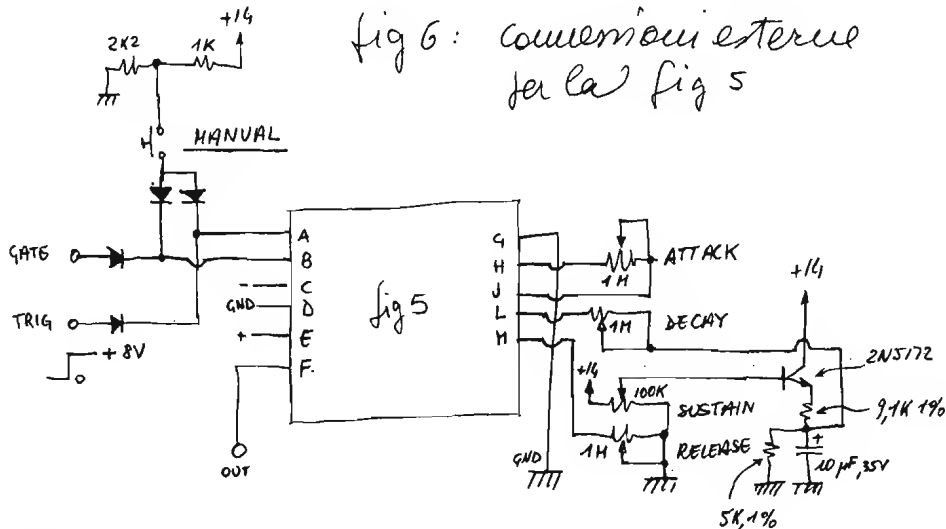 fig 6: connessioni esterne
per la fig 5
+14
2K2
1K
MANUAL
GATE
TRIG
+8V
A
B
- C
GND D
+ E
F.
OUT
fig 5
G
H
J
L
M
1M
ATTACK
1M
DECAY
+14
100K
SUSTAIN
1M
RELEASE
GND
+14
2N5172
9,1K 1%
+
10µF,35V
5K,1%